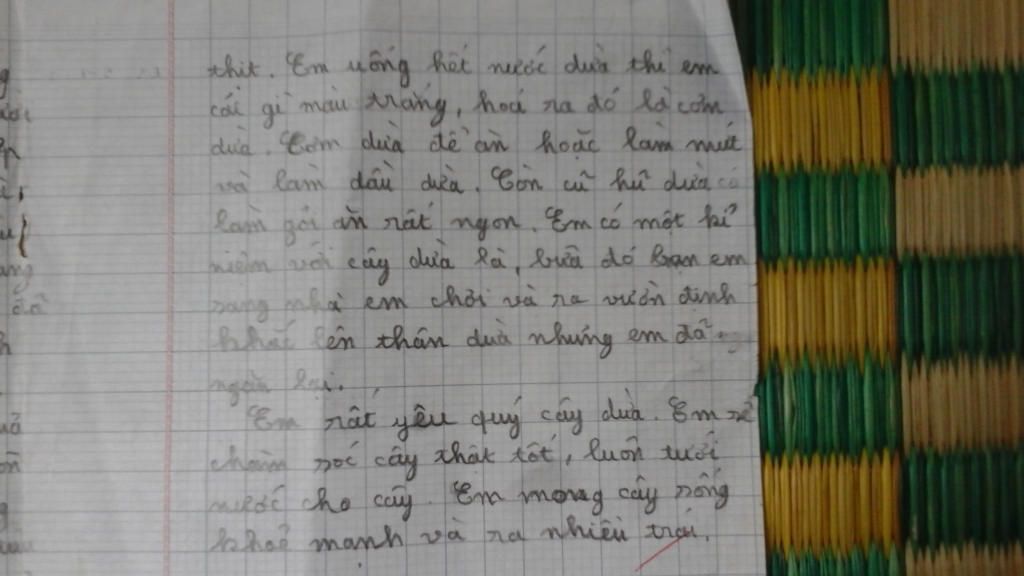 thịt. Em uống hết nước dừa thì em
cái gì màu trắng, hoá ra đó là cơm
dừa. Cơm dừa để ăn hoặc làm mứt
và làm dầu dừa. Còn củ hủ dừa có
làm gỏi ăn rất ngon. Em có một kỉ
niệm với cây dừa là, bữa đó bạn em
sang nhà em chơi và ra vườn định
khắc lên thân dừa nhưng em đã
ngăn lại.
Em rất yêu quý cây dừa. Em sẽ
chăm sóc cây thật tốt, luôn tưới
nước cho cây. Em mong cây sống
khoẻ mạnh và ra nhiều trái.